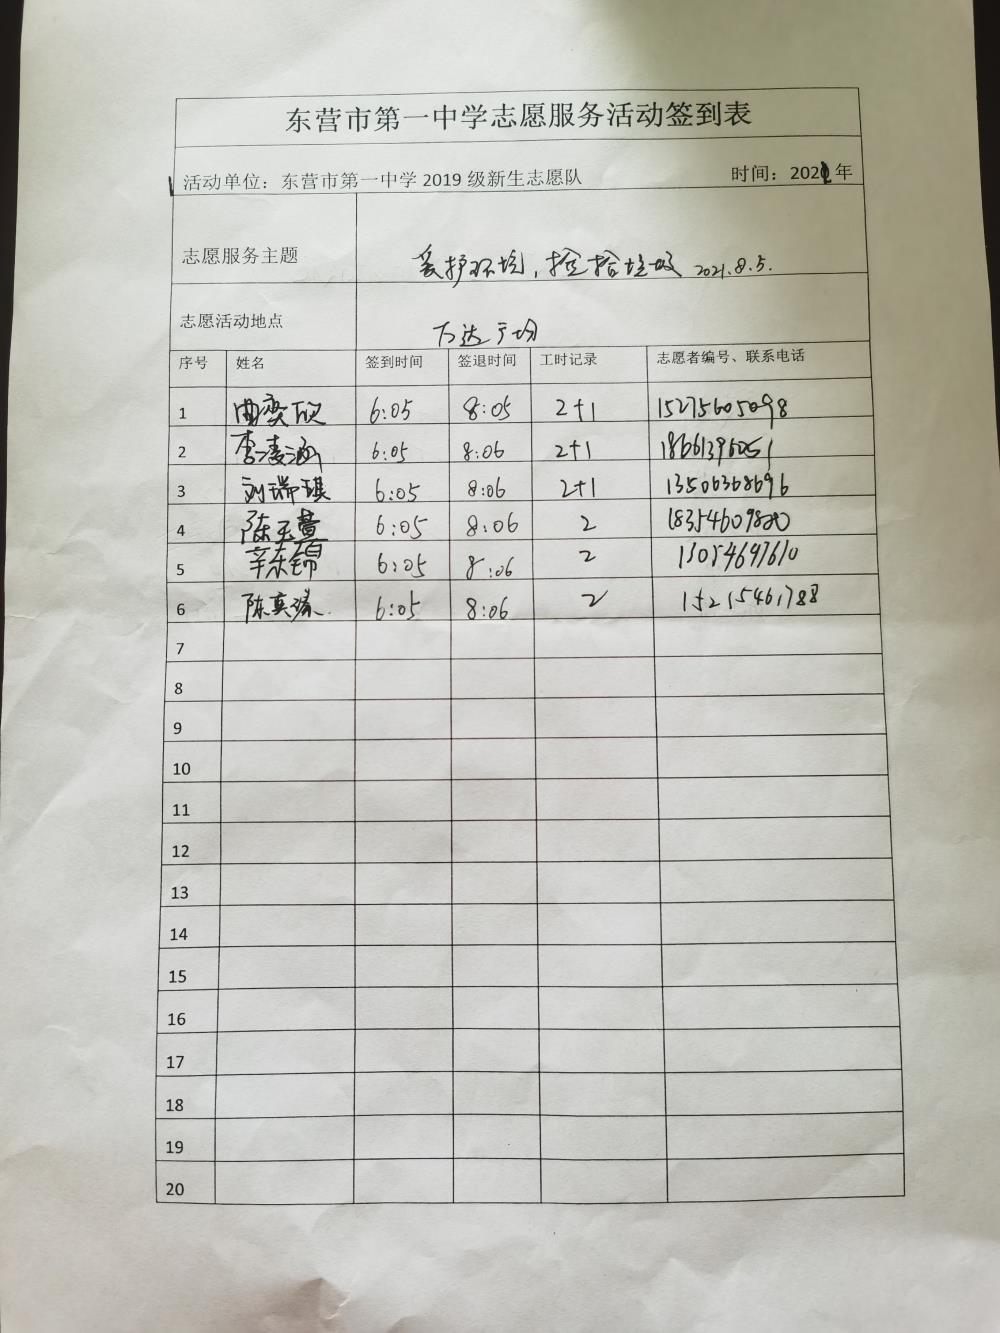 东营市第一中学志愿服务活动签到表
活动单位：东营市第一中学 2019 级新生志愿队 时间：2021年
志愿服务主题 爱护环境，捡拾垃圾 2021.8.5.
志愿活动地点 万达广场
序号 姓名 签到时间 签退时间 工时记录 志愿者编号、联系电话
1 曲奕欣 6:05 8:05 2+1 15275605098
2 李凌涵 6:05 8:06 2+1 18661396051
3 刘瑞琪 6:05 8:06 2+1 13506368696
4 陈玉萱 6:05 8:06 2 18354609820
5 辛东锦 6:05 8:06 2 13054697610
6 陈真 6:05 8:06 2 15215461788
7
8
9
10
11
12
13
14
15
16
17
18
19
20